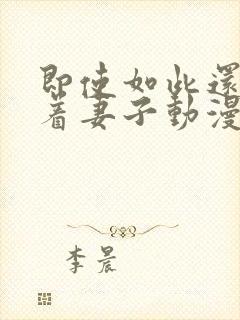 即使如此還
着妻子動漫
李晨